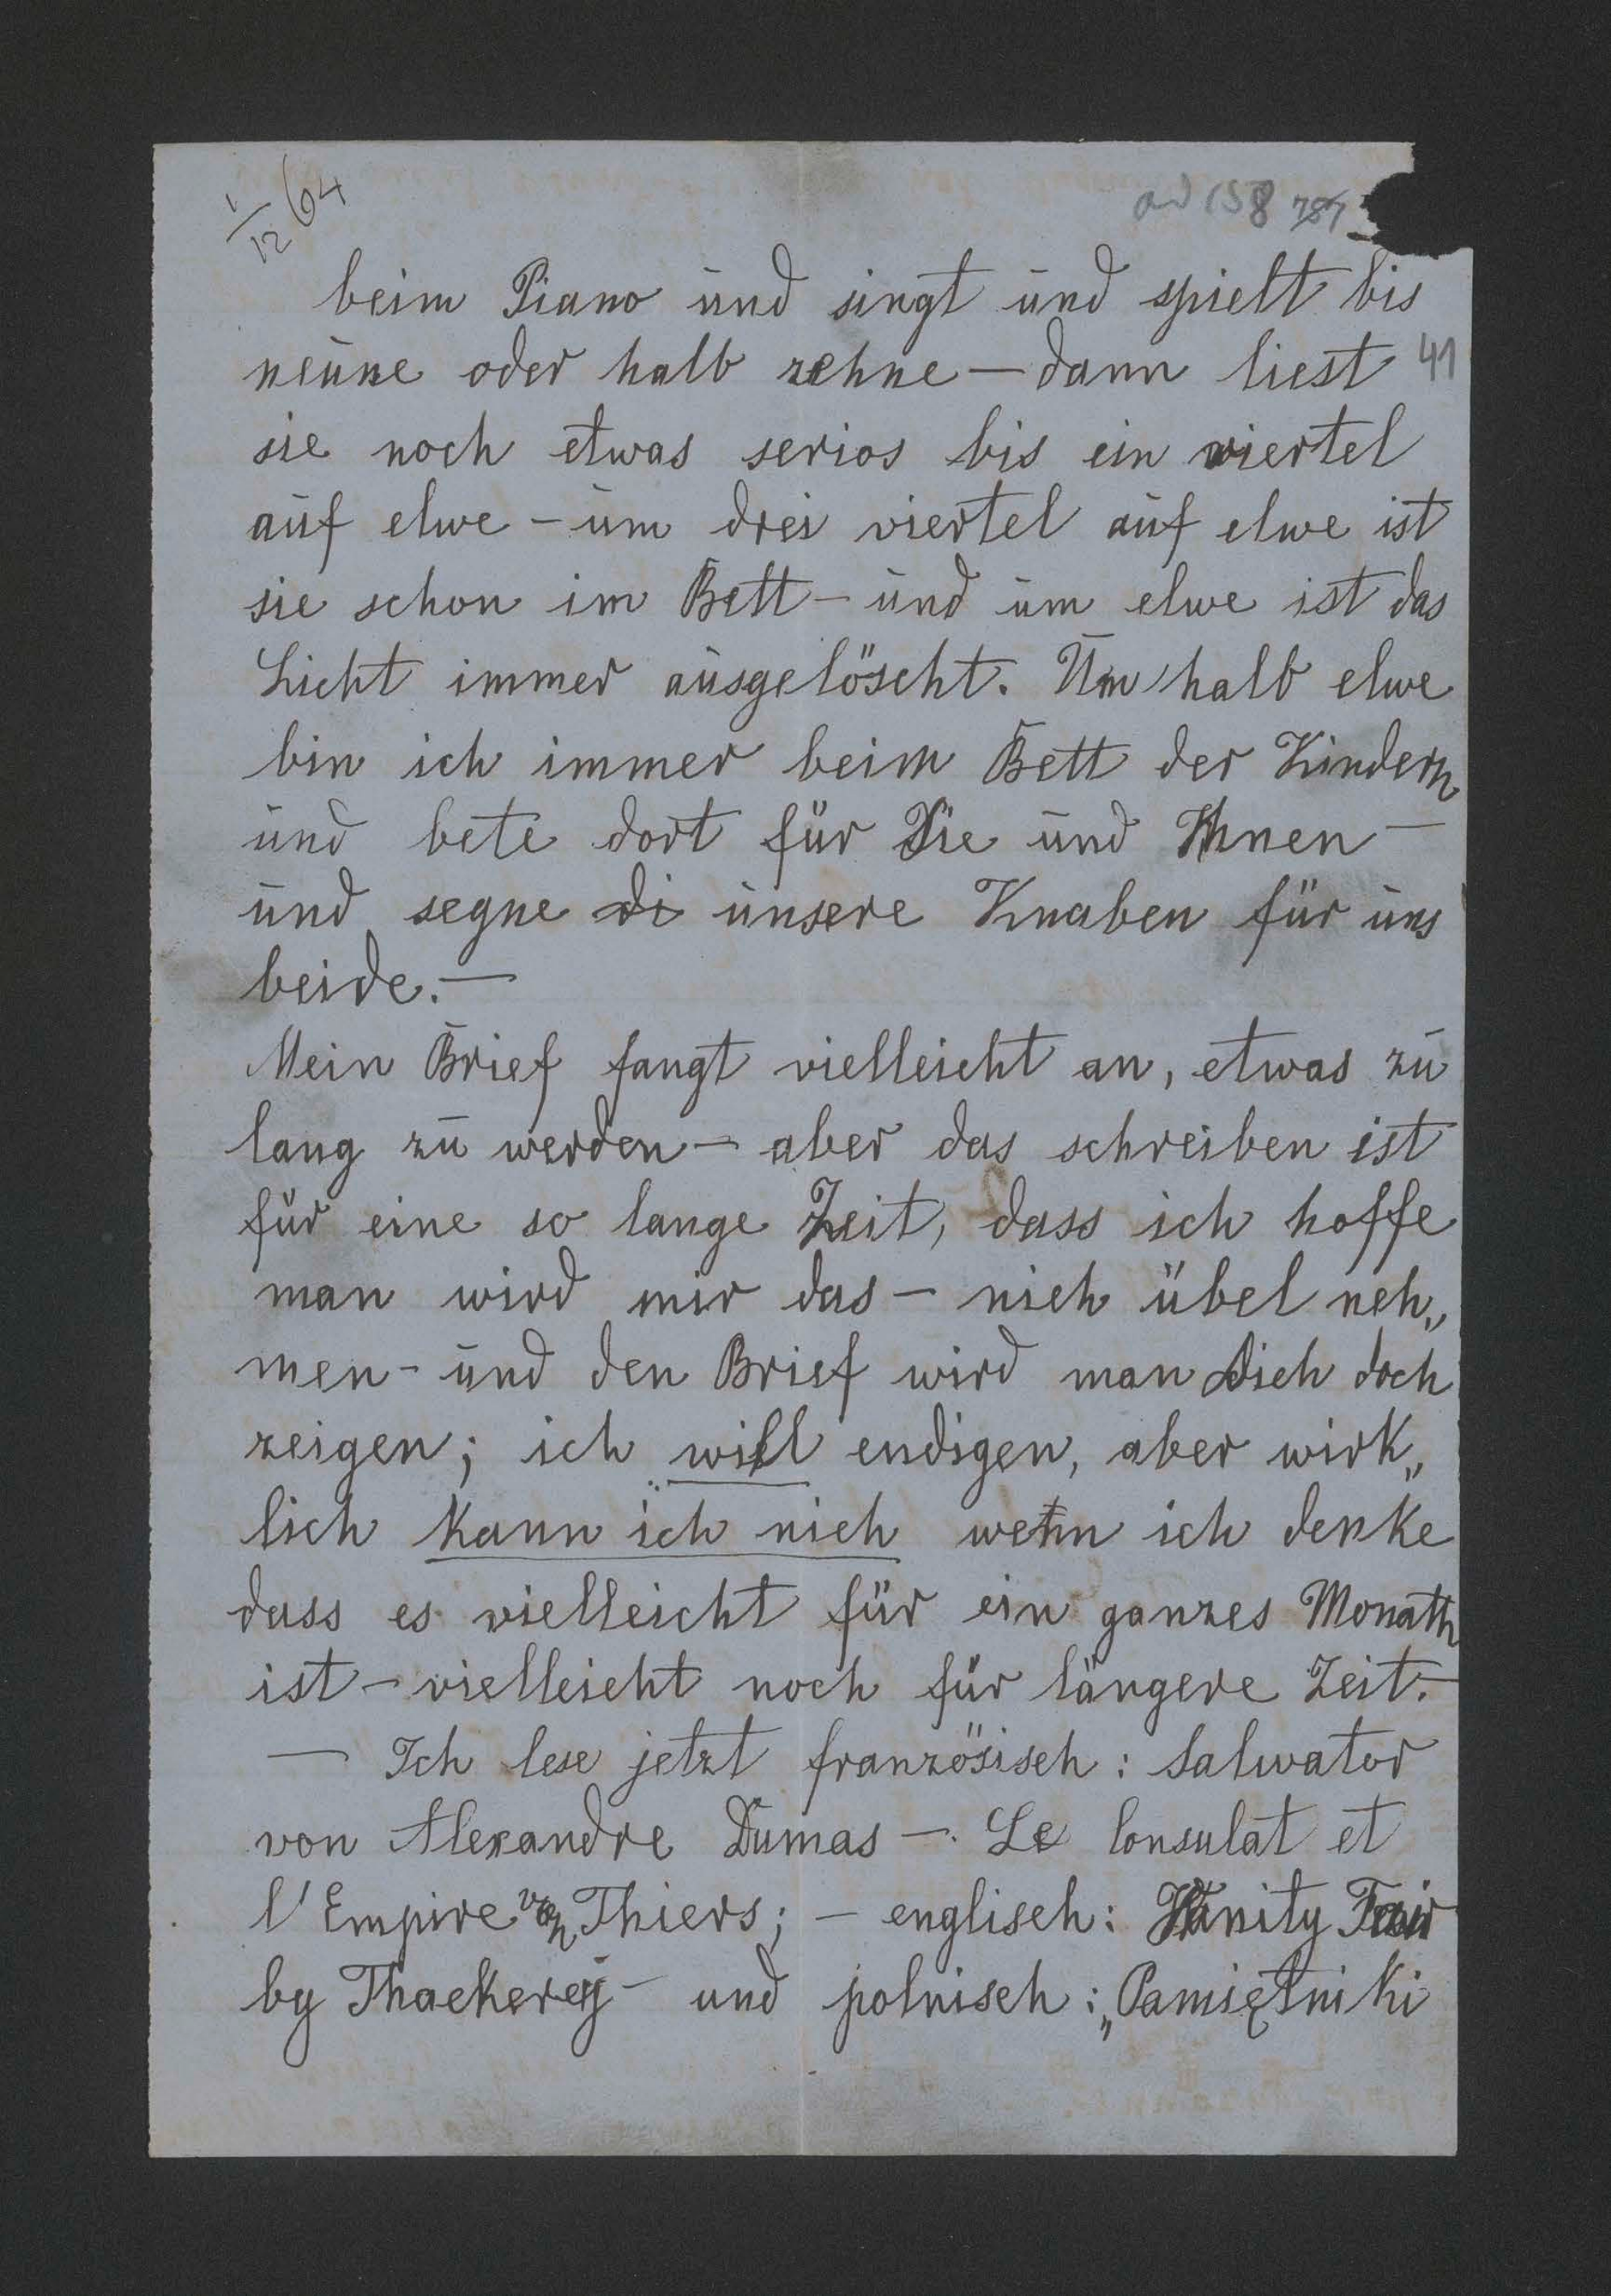 1/12 64
ad 158 787
beim Piano und singt und spielt bis
neune oder halb zehne — dann liest 41
sie noch etwas serios bis ein viertel
auf elwe — um drei viertel auf elwe ist
sie schon im Bett — und um elwe ist das
Licht immer ausgelöscht. Um halb elwe
bin ich immer beim Bett der Kindern
und bete dort für Sie und Ihnen —
und segne di unsere Knaben für uns
beide. —
Mein Brief fangt vielleicht an, etwas zu
lang zu werden — aber das schreiben ist
für eine so lange Zeit, dass ich hoffe
man wird mir das — nich übel neh„
men — und den Brief wird man Dich doch
zeigen; ich will endigen, aber wirk„
lich kann ich nich wenn ich denke
dass es vielleicht für ein ganzes Monath
ist — vielleicht noch für längere Zeit. —
— Ich lese jetzt französisch: Salwator
von Alexandre Dumas —. Le Consulat et
l'Empire von Thiers; — englisch: Vanity Fair
by Thackerey — und polnisch: „Pamiętniki